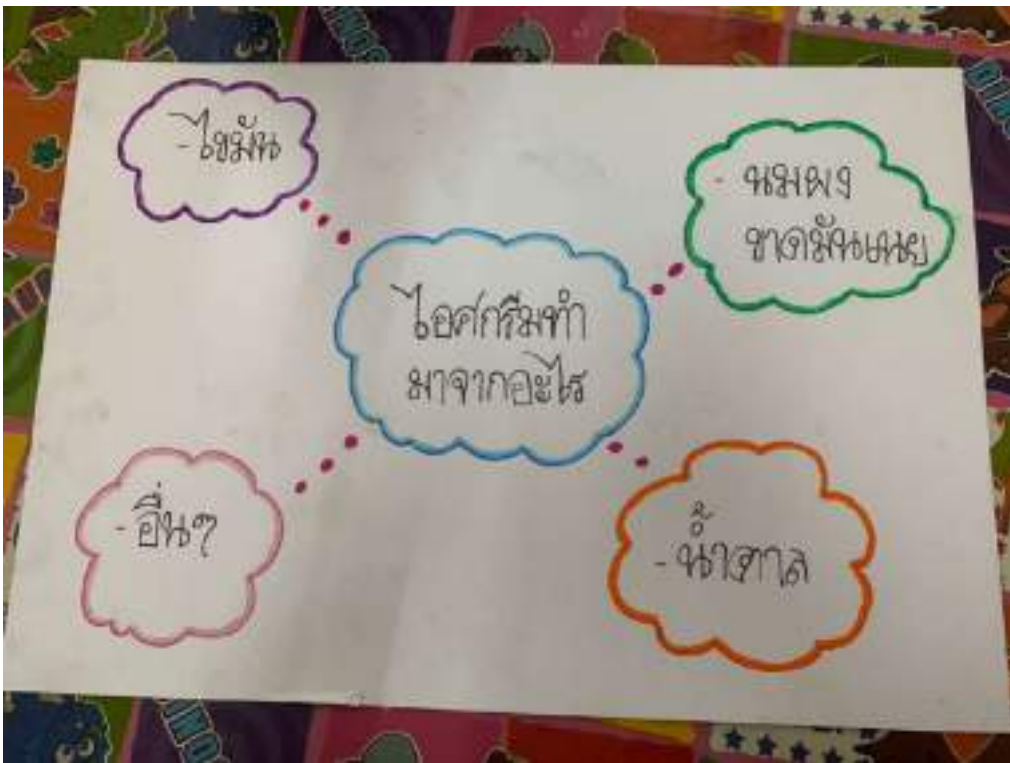 - ไขมัน
- นมผง
ขาดมันเนย
ไอศกรีมทำ
มาจากอะไร
- อื่นๆ
- น้ำตาล